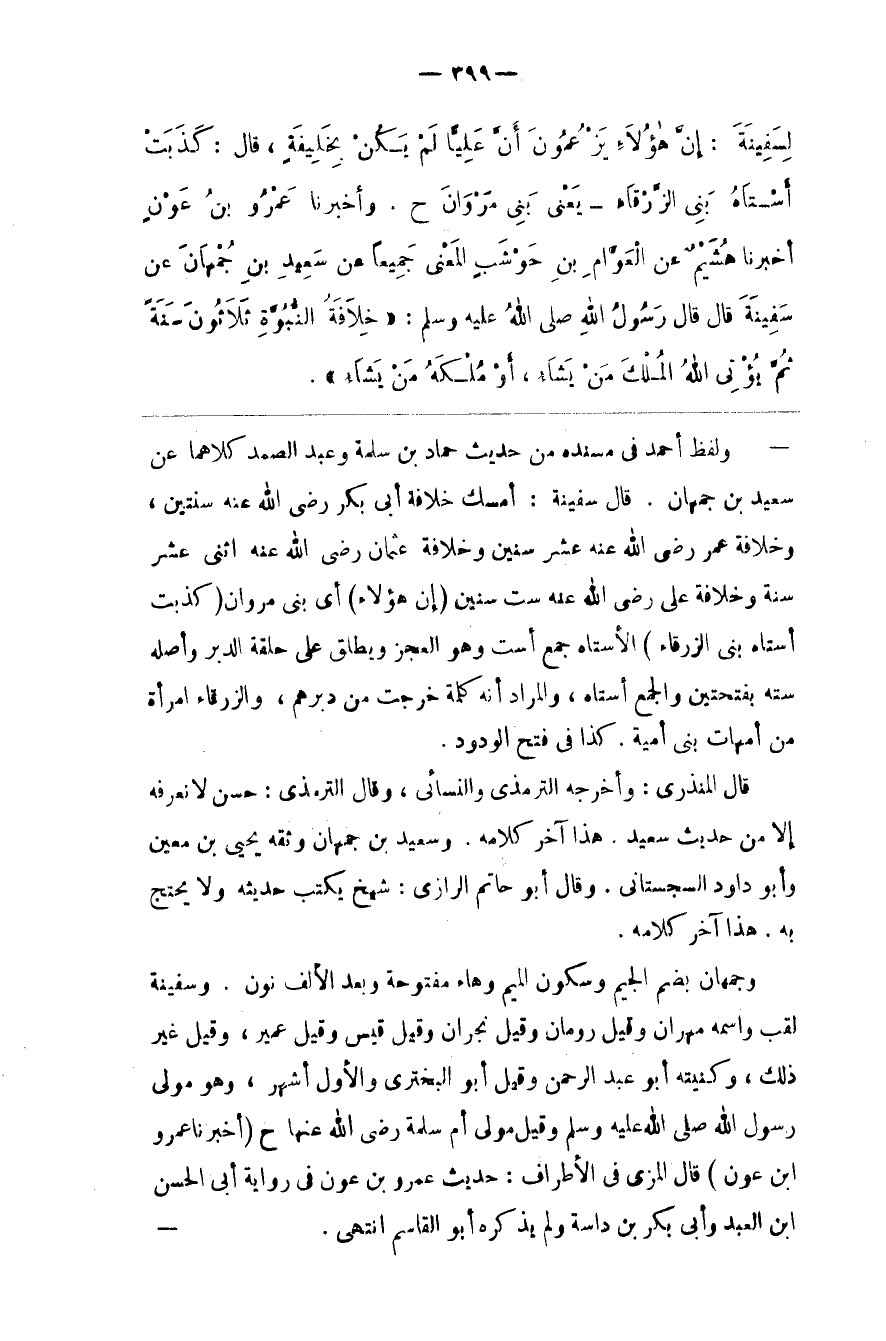 — ٣٩٩ —
لِسَفِينَةَ : إنَّ هٰؤُلَاءِ يَزْعُمُونَ أَنَّ عَلِيًّا لَمْ يَكُنْ بِخَلِيفَةٍ ، قال : كَذَبَتْ
أَسْتَاهُ بَنِى الزَّرْقَاءِ ـ يَعْنِى بَنِى مَرْوَانَ ح . وأخبرنا عَمْرُو بنُ عَوْنٍ
أخبرنا هُشَيْمٌ عن الْعَوَّامِ بنِ حَوْشَبٍ المَعْنَى جَمِيعاً عن سَعِيدِ بنِ جُمْهَانَ عن
سَفِينَةَ قال قال رَسُولُ اللهِ صلى اللهُ عليه وسلم : « خِلاَفَةُ النُّبُوَّةِ ثَلاَثُونَ سَنَةً
ثُمَّ يُؤْتِى اللهُ المُلْكَ مَنْ يَشَاءُ ، أَوْ مُلْكَهُ مَنْ يَشَاءُ » .
— ولفظ أحمد فى مسنده من حديث حماد بن سلمة وعبد الصمد كلاهما عن
سعيد بن جمهان . قال سفينة : أمسك خلافة أبى بكر رضى الله عنه سنتين ،
وخلافة عمر رضى الله عنه عشر سنين وخلافة عثمان رضى الله عنه اثنى عشر
سنة وخلافة على رضى الله عنه ست سنين (إن هؤلاء) أى بنى مروان (كذبت
أستاه بنى الزرقاء ) الأستاه جمع أست وهو العجز ويطلق على حلقة الدبر وأصله
سته بفتحتين والجمع أستاه ، والمراد أنه كلمة خرجت من دبرهم ، والزرقاء امرأة
من أمهات بنى أمية . كذا فى فتح الودود .
قال المنذرى : وأخرجه الترمذى والنسائى ، وقال الترمذى : حسن لا نعرفه
إلا من حديث سعيد . هذا آخر كلامه . وسعيد بن جمهان وثقه يحيى بن معين
وأبو داود السجستانى . وقال أبو حاتم الرازى : شيخ يكتب حديثه ولا يحتج
به . هذا آخر كلامه .
وجمهان بضم الجيم وسكون الميم وهاء مفتوحة وبعد الألف نون . وسفينة
لقب واسمه مهران وقيل رومان وقيل نجران وقيل قيس وقيل عمير ، وقيل غير
ذلك ، وكنيته أبو عبد الرحمن وقيل أبو البخترى والأول أشهر ، وهو مولى
رسول الله صلى الله عليه وسلم وقيل مولى أم سلمة رضى الله عنها ح (أخبرنا عمرو
ابن عون ) قال المزى فى الأطراف : حديث عمرو بن عون فى رواية أبى الحسن
ابن العبد وأبى بكر بن داسة ولم يذكره أبو القاسم انتهى . —